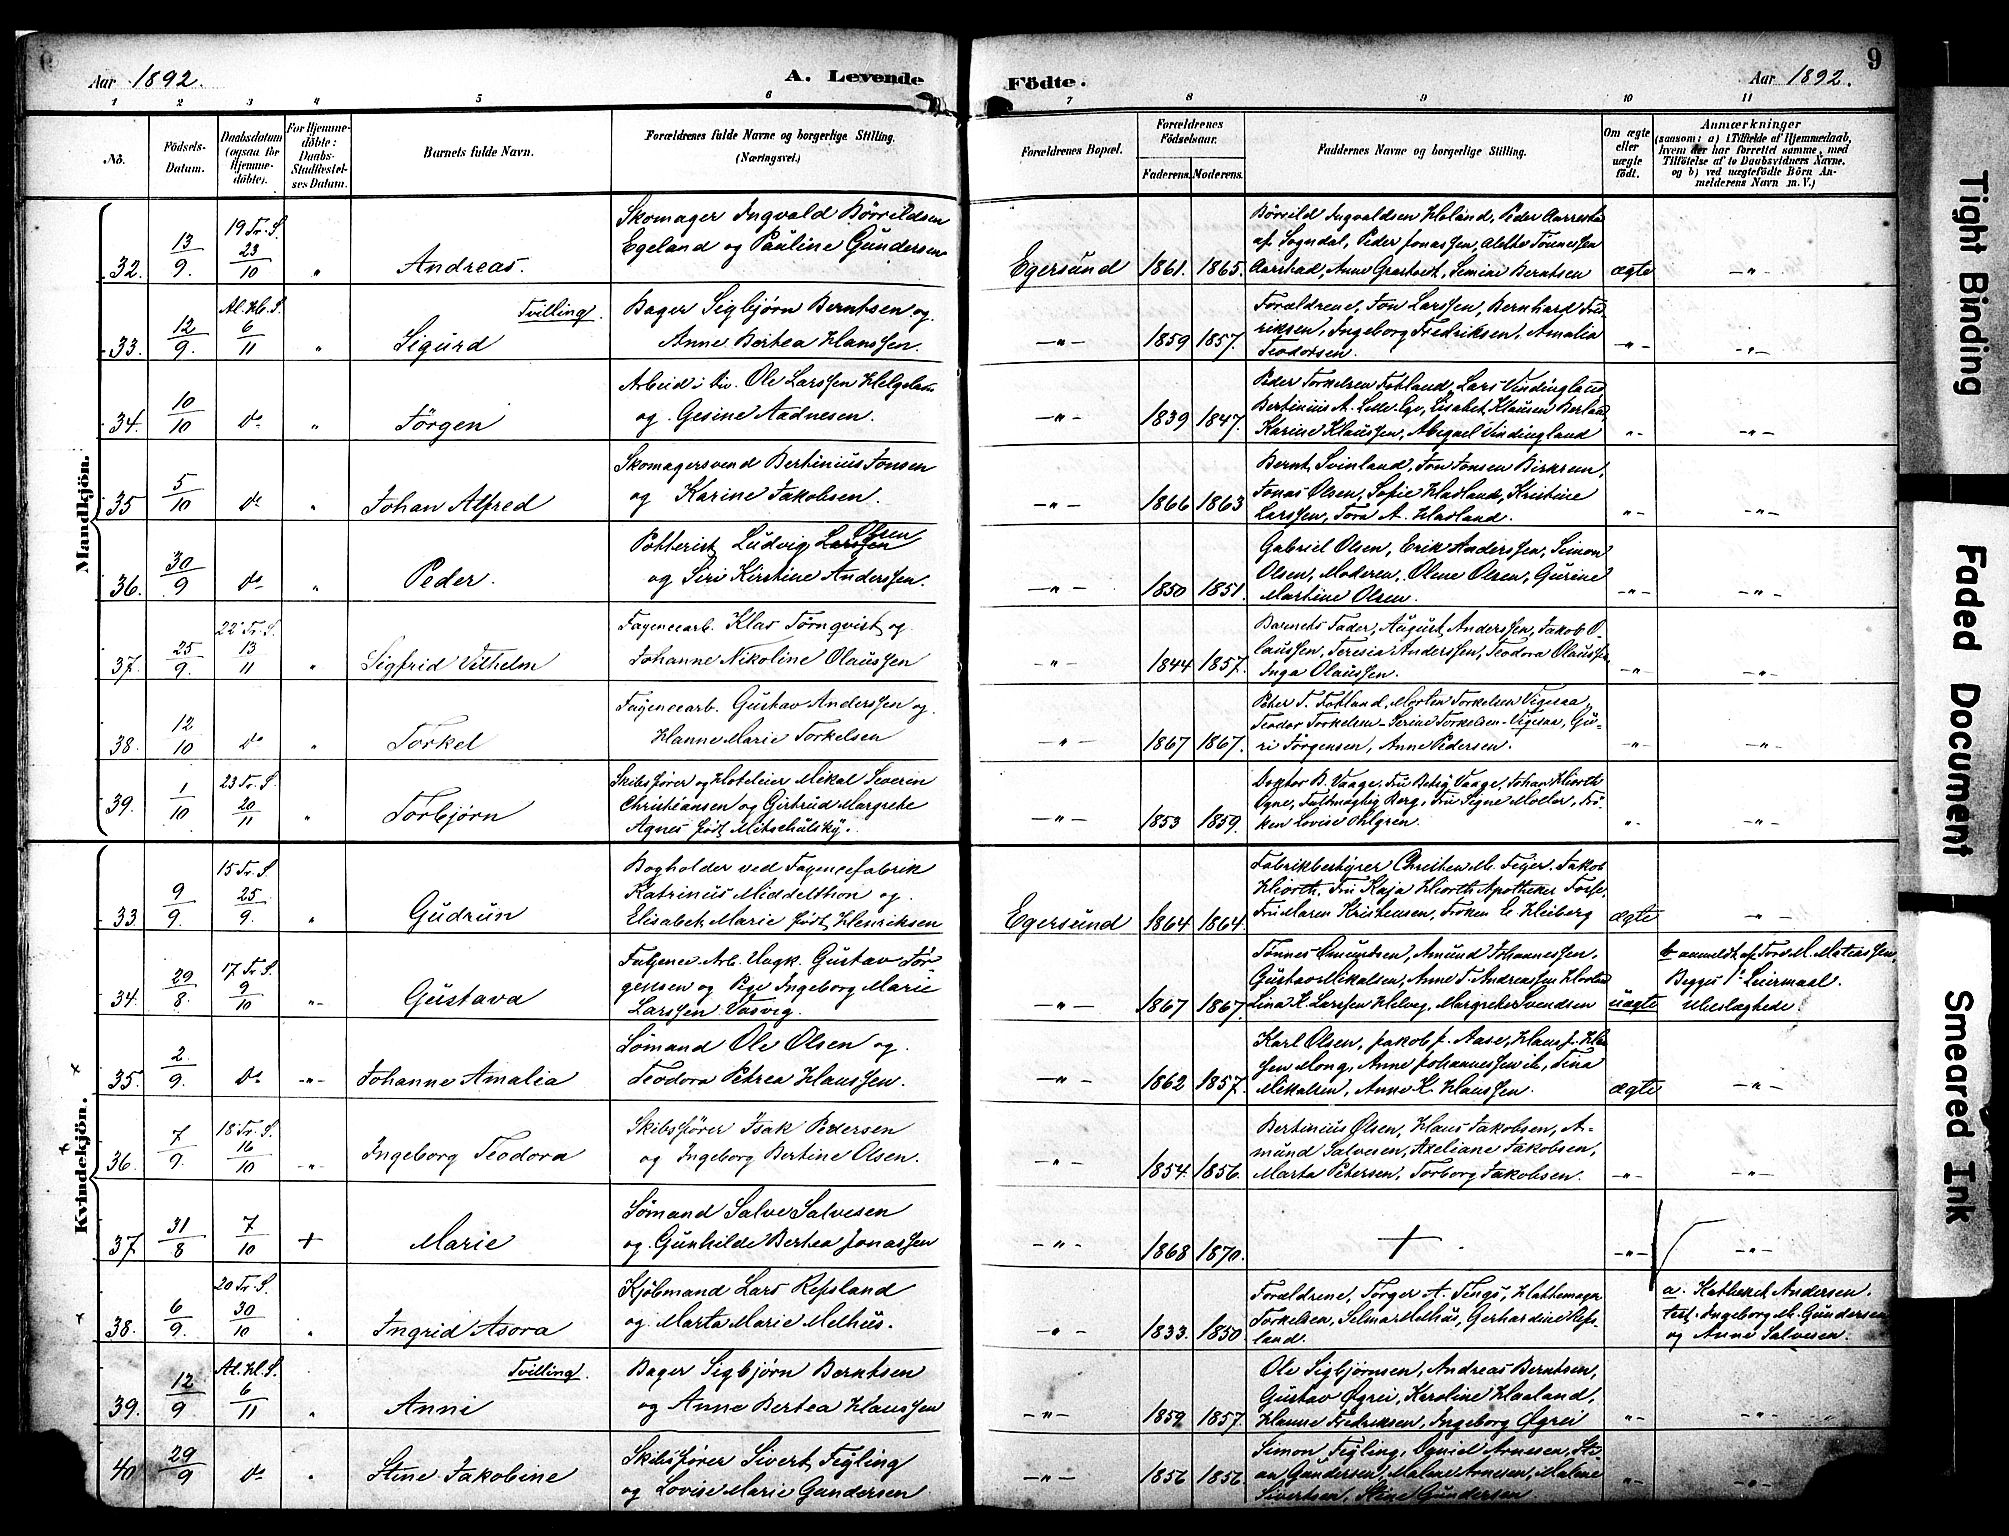 Aar 1892.
A. Levende
Födte.
Aar 1892.
9
1 2 3 4 5 6 7 8 9 10 11
No.
Födsels-Datum.
Daabsdatum (ogsaa for Hjemmedöbte).
For Hjemmedöbte: Daabs-Stadfæstelses Datum.
Barnets fulde Navn.
Forældrenes fulde Navne og borgerlige Stilling. (Næringsvei.)
Forældrenes Bopæl.
Forældrenes Födselsaar.
Faderens. Moderens.
Faddernes Navne og borgerlige Stilling.
Om ægte eller uægte födt.
Anmærkninger
(saasom: a) i Tilfælde af Hjemmedaab, hvem der har forrettet samme, med Tilföielse af to Daabsvidners Navne, og b) ved uægtefödte Börn Anmelderens Navn m. V.)
Mandkjön.
32. 13/9 19 Tr. S. 23/10 " Andreas.
Skomager Ingvald Börrildsen
Egeland og Pauline Gundersen
Egersund 1861. 1865.
Börrild Ingvaldsen Holand, Peder Aarrestad
af Sogndal, Peder Jonassen, Alette Tönnessen
Aarstad, Anne Grastveit, Semine Berntsen
ægte -"-
33. 12/9 Al. H. S. 6/11 " Sigurd Tvilling.
Bager Sigbjørn Berntsen og
Anne Bertea Hanssen.
-"- 1859 1857.
Forældrene, Jon Larssen, Bernhard Fredriksen, Ingeborg Fredriksen, Amalia
Teodorsen.
-"- -"-
34. 10/10 do " Jörgen
Arbeid i Div. Ole Larssen Helgeland
og Gesine Aadnesen.
-"- 1839 1847.
Peder Torkelsen Fotland, Lars Vindingland
Bertinius A. Lille-Egr, Lisabet Klausen
Karine Klaussen, Abigael Vindingland
-"- -"-
35 5/10 do " Johan Alfred
Skomagersvend Bertinius Jonsen
og Karine Jakobsen.
-"- 1866 1863
Bernt Svinland, Jon Jonsen Birkrem,
Jonas Olsen, Sofie Hadland, Kristine
Larssen, Tora A. Hadland.
-"- -"-
36. 30/9 do " Peder.
Potterist Ludvig Larssen Olsen
og Siri Kirstine Anderssen.
-"- 1850 1851.
Gabriel Olsen, Erik Anderssen, Simon
Olsen, Moderen, Olene Olsen, Gurine
Martine Olsen.
-"- -"-
37. 25/9. 22 Tr. S. 13/11 " Sigfrid Vilhelm
Fayencearb. Klas Törnqvist og
Johanne Nikoline Olaussen
-"- 1844 1857.
Barnets Fader, August Anderssen, Jakob Olaussen, Teresia Anderssen, Teodora Olaussen
Inga Olaussen.
-"- -"-
38. 12/10 do " Torkel
Fayencearb. Gustav Anderssen og
Hanne Marie Torkelsen
-"- 1867 1867.
Peter T. Fotland, Morten Torkelsen Vigesaa,
Teodor Torkelsen - Serine Torkelsen-Vigesaa, Guri Jörgensen, Anne Pedersen.
-"- -"-
39. 1/10 23 Tr. S. 20/11 " Torbjörn
Skibsfører og Hoteleier Mikal Severin
Christiansen og Girtrud Margrete
Agnes født Mitschulsky.
-"- 1853 1859.
Doktor B. Vaage, Fru Betsy Vaage, Johan Hiorth
Ogne, Fuldmægtig Berg, Fru Signe Moller, Fröken Lovise Ohlgren.
" -"-
Kvindekjön.
33. 9/9 15 Tr. S. 25/9. " Gudrun
Bogholder ved Fayencefabrik
Katrinus Middelthon og
Elisabet Marie født Henriksen
Egersund 1864 1864.
Fabrikbestyrer Christen M. Feyer, Jakob
Hiorth, Fru Kaja Hiorth, Apotheker
Fru Maren Kristensen, Frøken E. Heiberg
ægte -"-
34. 29/8. 17 Tr. S. 9/10 -"- Gustava
Fayence Arb. Ungk. Gustav Jörgensen og Pge Ingeborg Marie
Larssen Vasvig.
-"- 1867 1867
Tönnes Omundsen, Amund Johannessen,
Gustav Mikalsen, Anne T. Andreassen
Lina K. Larssen Helvig, Margrete Svendsen
uægte
b anmeldt af M. Matiassen,
Begges 1ste Leiermaal.
Ubeslægtede.
35. 2/9. do -"- Johanne Amalia
Sømand Ole Olsen og
Teodora Petrea Hanssen.
-"- 1862 1857.
Karl Olsen, Jakob J. Aase, Hans J. Hanssen Mong, Anne Johannessen, Tina
Mikalsen, Anne K. Hanssen.
ægte -"-
36. 7/9. 18 Tr. S. 16/10 -"- Ingeborg Teodora
Skibsfører Isak Pedersen
og Ingeborg Bertine Olsen.
-"- 1854. 1856.
Bertinius Olsen, Hans Jakobsen, Amund Salvesen, Axeliane Jakobsen,
Marta Petersen, Torborg Jakobsen.
-"- -"-
37 31/8 7/10 + Marie
Sømand Salve Salvesen
og Gunhilde Bertea Jonassen
-"- 1868 1870.
+
-"- -"-
38. 6/9. 20 Tr. S. 30/10 " Ingrid Asora
Kjöbmand Lars Refsland
og Marta Marie Melhus.
-"- 1833. 1850.
Forældrene, Torger A. Tengs, Hattemager
Torkelsen, Selmar Melhus, Gerhardine Refsland.
a. Katheket Andersen,
test. Ingeborg M. Gundersen
og Anne Salvesen.
39. 12/9 Al. H. S. 6/11 " Anni Tvilling.
Bager Sigbjørn Berntsen
og Anne Bertea Hanssen
-"- 1859. 1857.
Ole Sigbjørnsen, Andreas Berntsen,
Gustav Øgrei, Karoline Haaland,
Hanne Fredriksen, Ingeborg Øgrei
-"- "
40 29/9 do " Stine Jakobine
Skibsfører Sivert Tegling
og Lovise Marie Gundersen
-"- 1856 1856
Simon Tegling, Arnesen,
Gundersen, Malene
Sivertsen, Stine Gundersen.
-"- -"-
Tight Binding
Faded Document
Smeared Ink